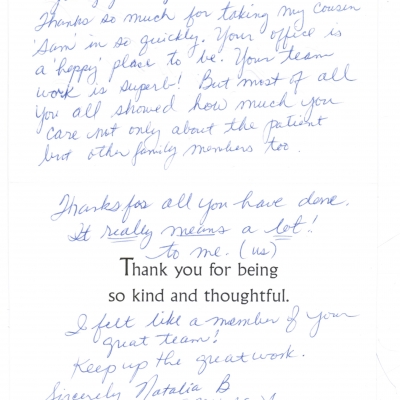 Thanks so much for taking my cousin
'Sam' in so quickly. Your office is
a 'happy' place to be. Your team
work is superb! But most of all
you all showed how much you
care not only about the patient
but other family members too.
Thanks for all you have done.
It really means a lot!!
to me. (us)
Thank you for being
so kind and thoughtful.
I felt like a member of your
great team!
Keep up the great work.
Sincerely Natalia B